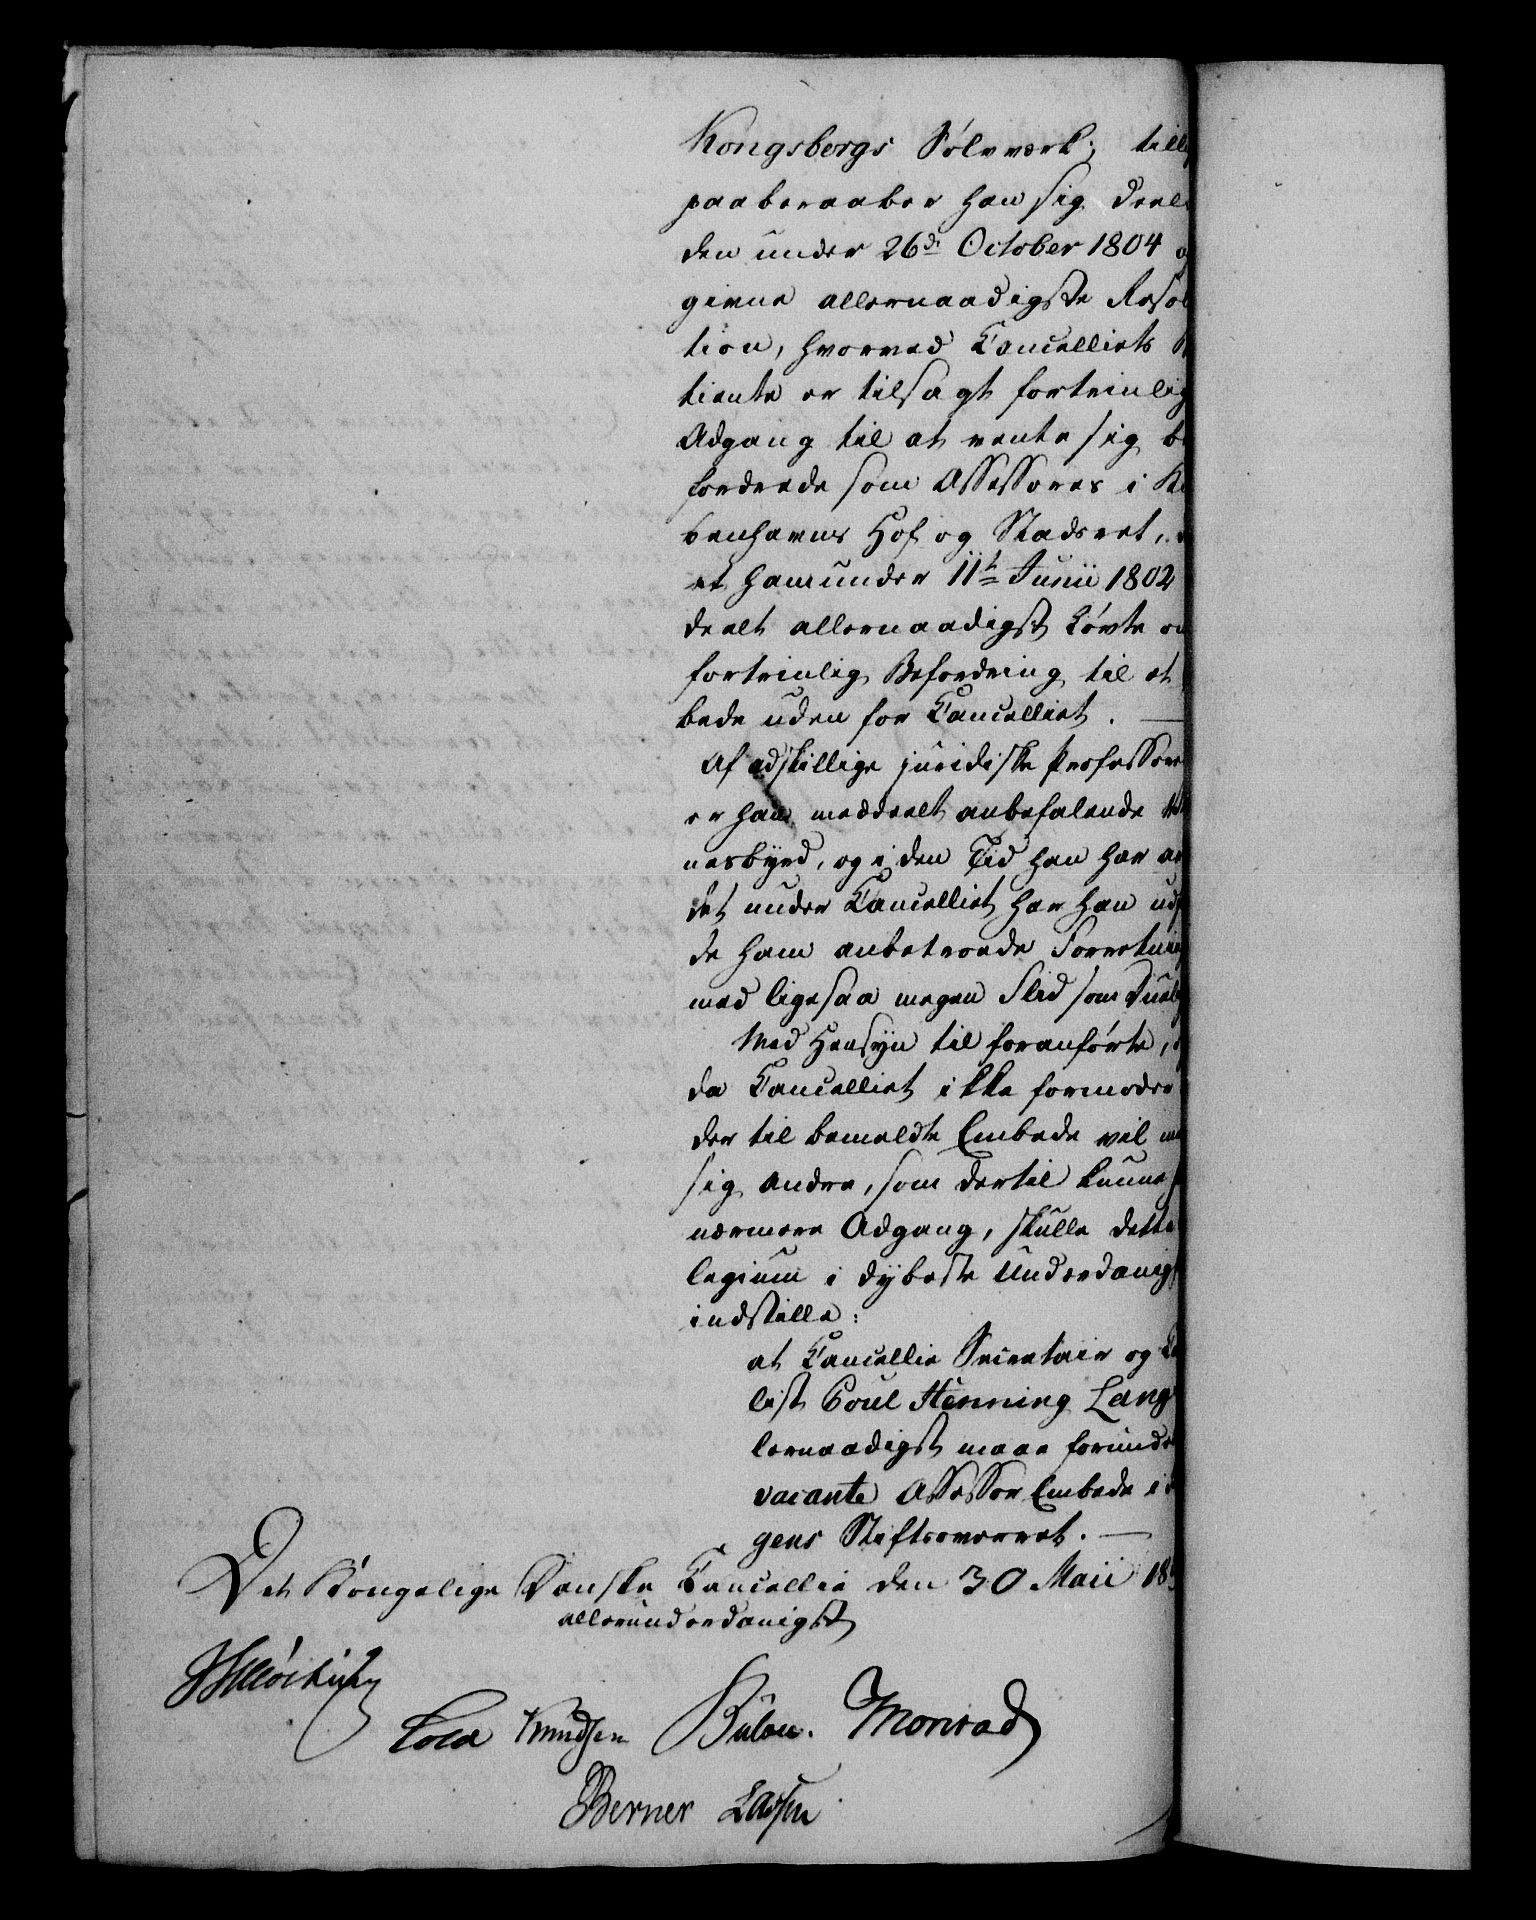 Kongsbergs Sølvværk; till
paaberaaber han sig deels
den under 26de October 1804 
givne allernaadigste Resol
tion, hvorved Cancelliets
tiente er tilsagt fortrinlig
Adgang til at vente sig be
fordrede som Assessores i Ki
benhavns Hof og Stadsret,
et ham under 11te Junii 1802
deelt allernaadigst Løvte om
fortrinlig Befordring til et
bede uden for Cancelliet. —
Af adskillige juridiske Professore
er ham meddeelt anbefalende Vid
nesbyrd, og i den Tid han har ar
det under Cancelliet har han udf
de ham anbetroede Forretning
med ligesaa megen Flid som Duel
Med Hensyn til foranførte,
da Cancelliet ikke formoder
der til bemeldte Embede vil me
sig andre, som dertil kunne
nærmere Adgang, skulle dette
legium i dybeste Underdanig
indstille:
at Cancellie Secretair og Ca
list Poul Henning Lang
lernaadigst maae forunde
vacante Assessor Embede i
gens Stiftsoverret. —
Det Kongelige Danske Cancellie den 30 Maii 18
allerunderdanigst
Cold Knudsen Bülow. Monrad
Berner Lassen